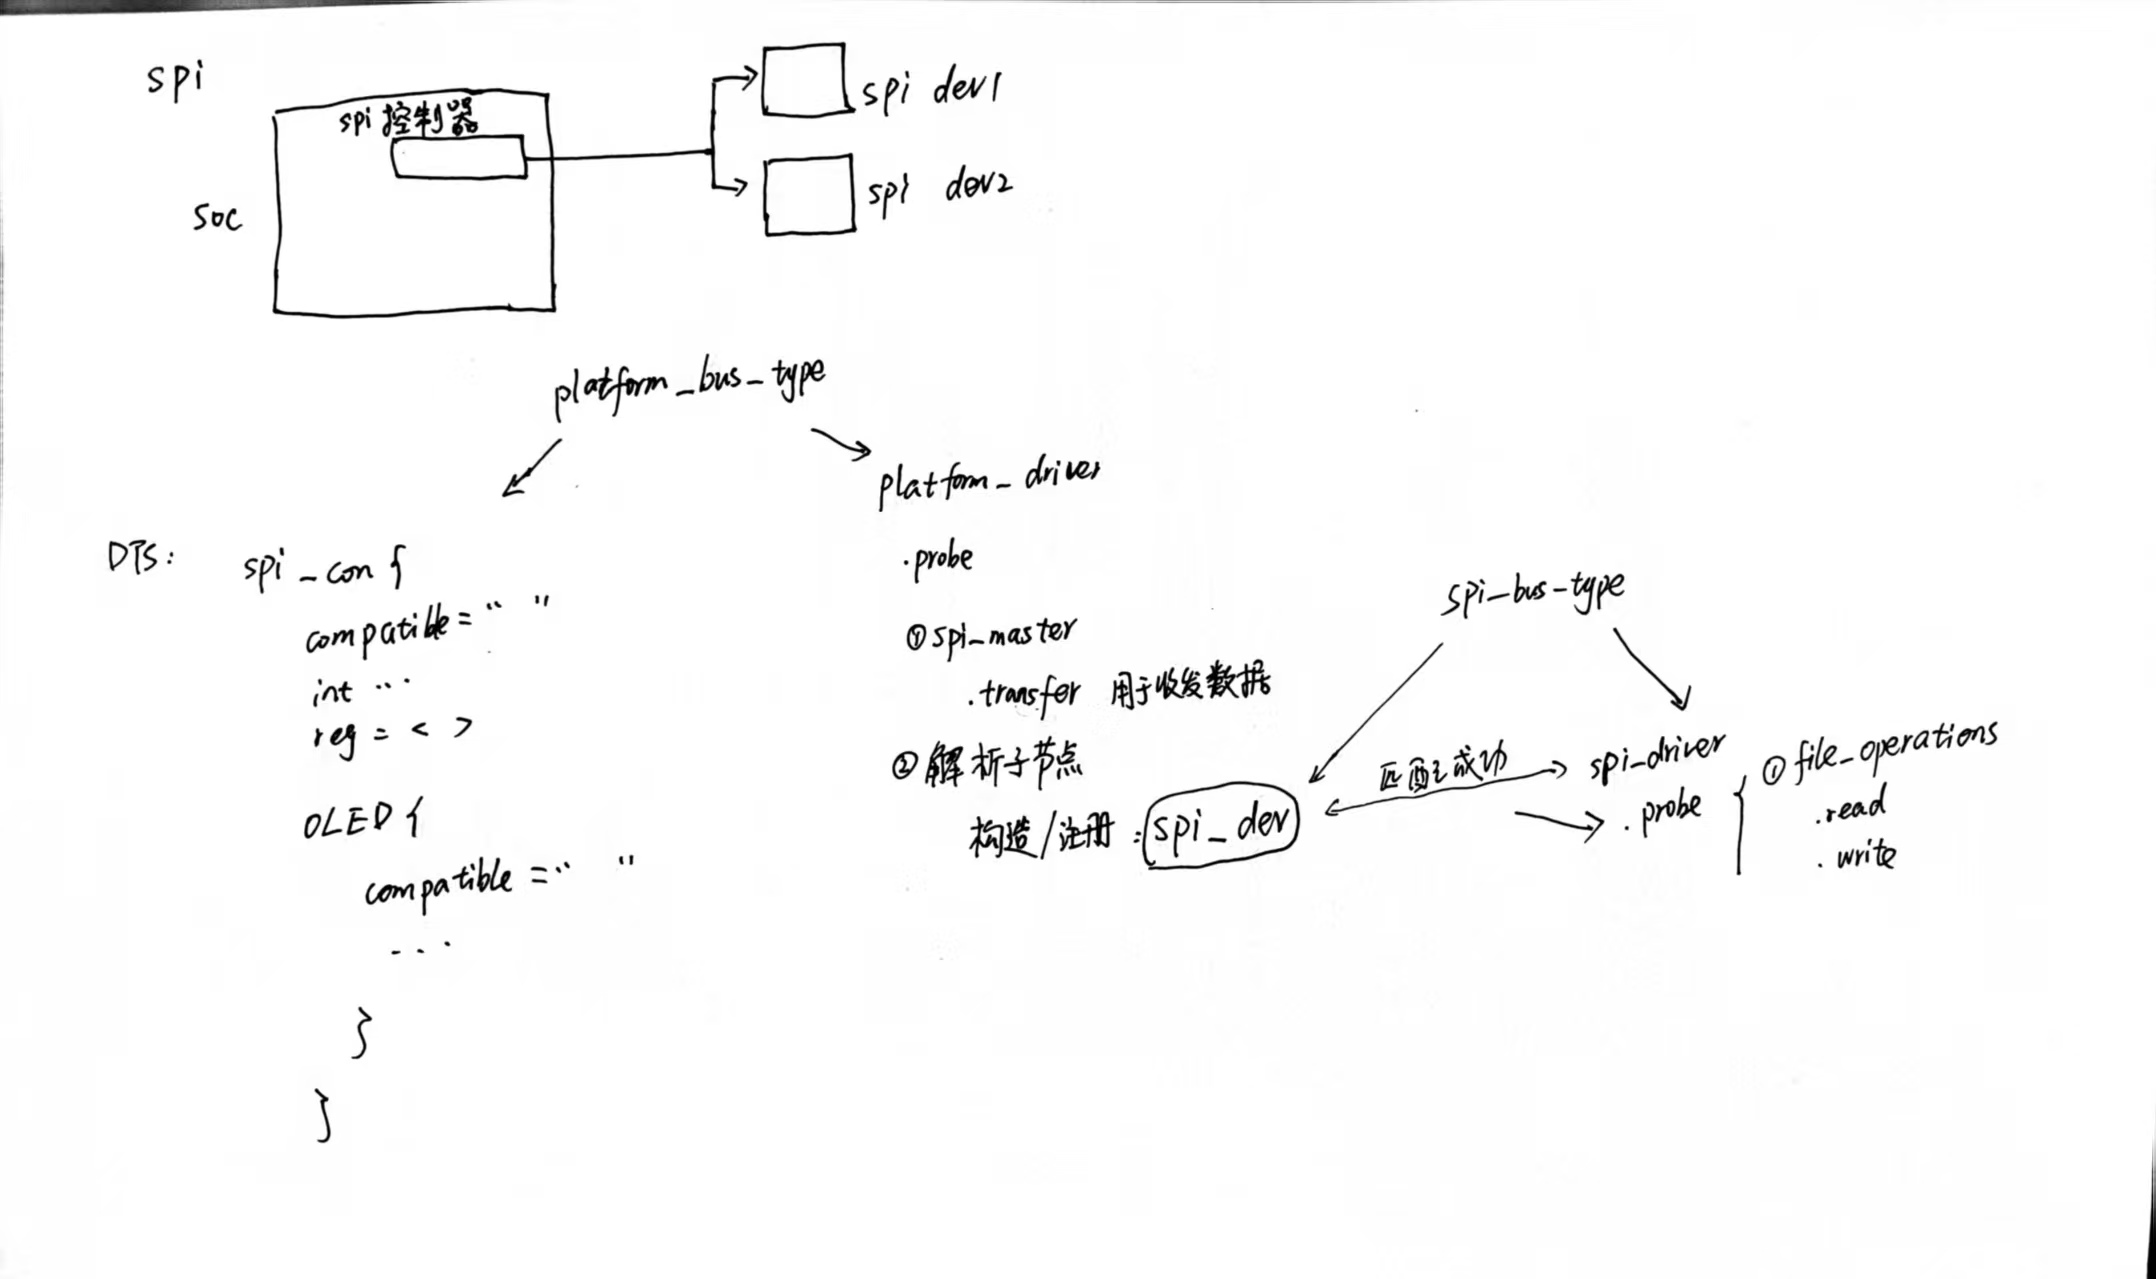 spi
spi控制器
soc
spi dev1
spi dev2
platform_bus_type
platform_driver
.probe
①spi_master
.transfer 用于收发数据
②解析子节点
构造/注册:spi_dev
DTS:
spi_con{
compatible=" "
int ...
reg = < >
OLED{
compatible=" "
...
}
}
spi_bus_type
匹配成功
spi_driver
.probe
①file_operations
.read
.write